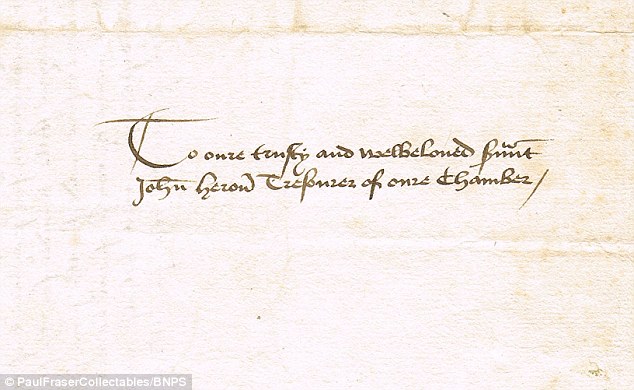 To oure trusty and welbeloued s̉uñt
John̄ heron̄ Tresourer of oure Chamber /
© PaulFraserCollectables/BNPS